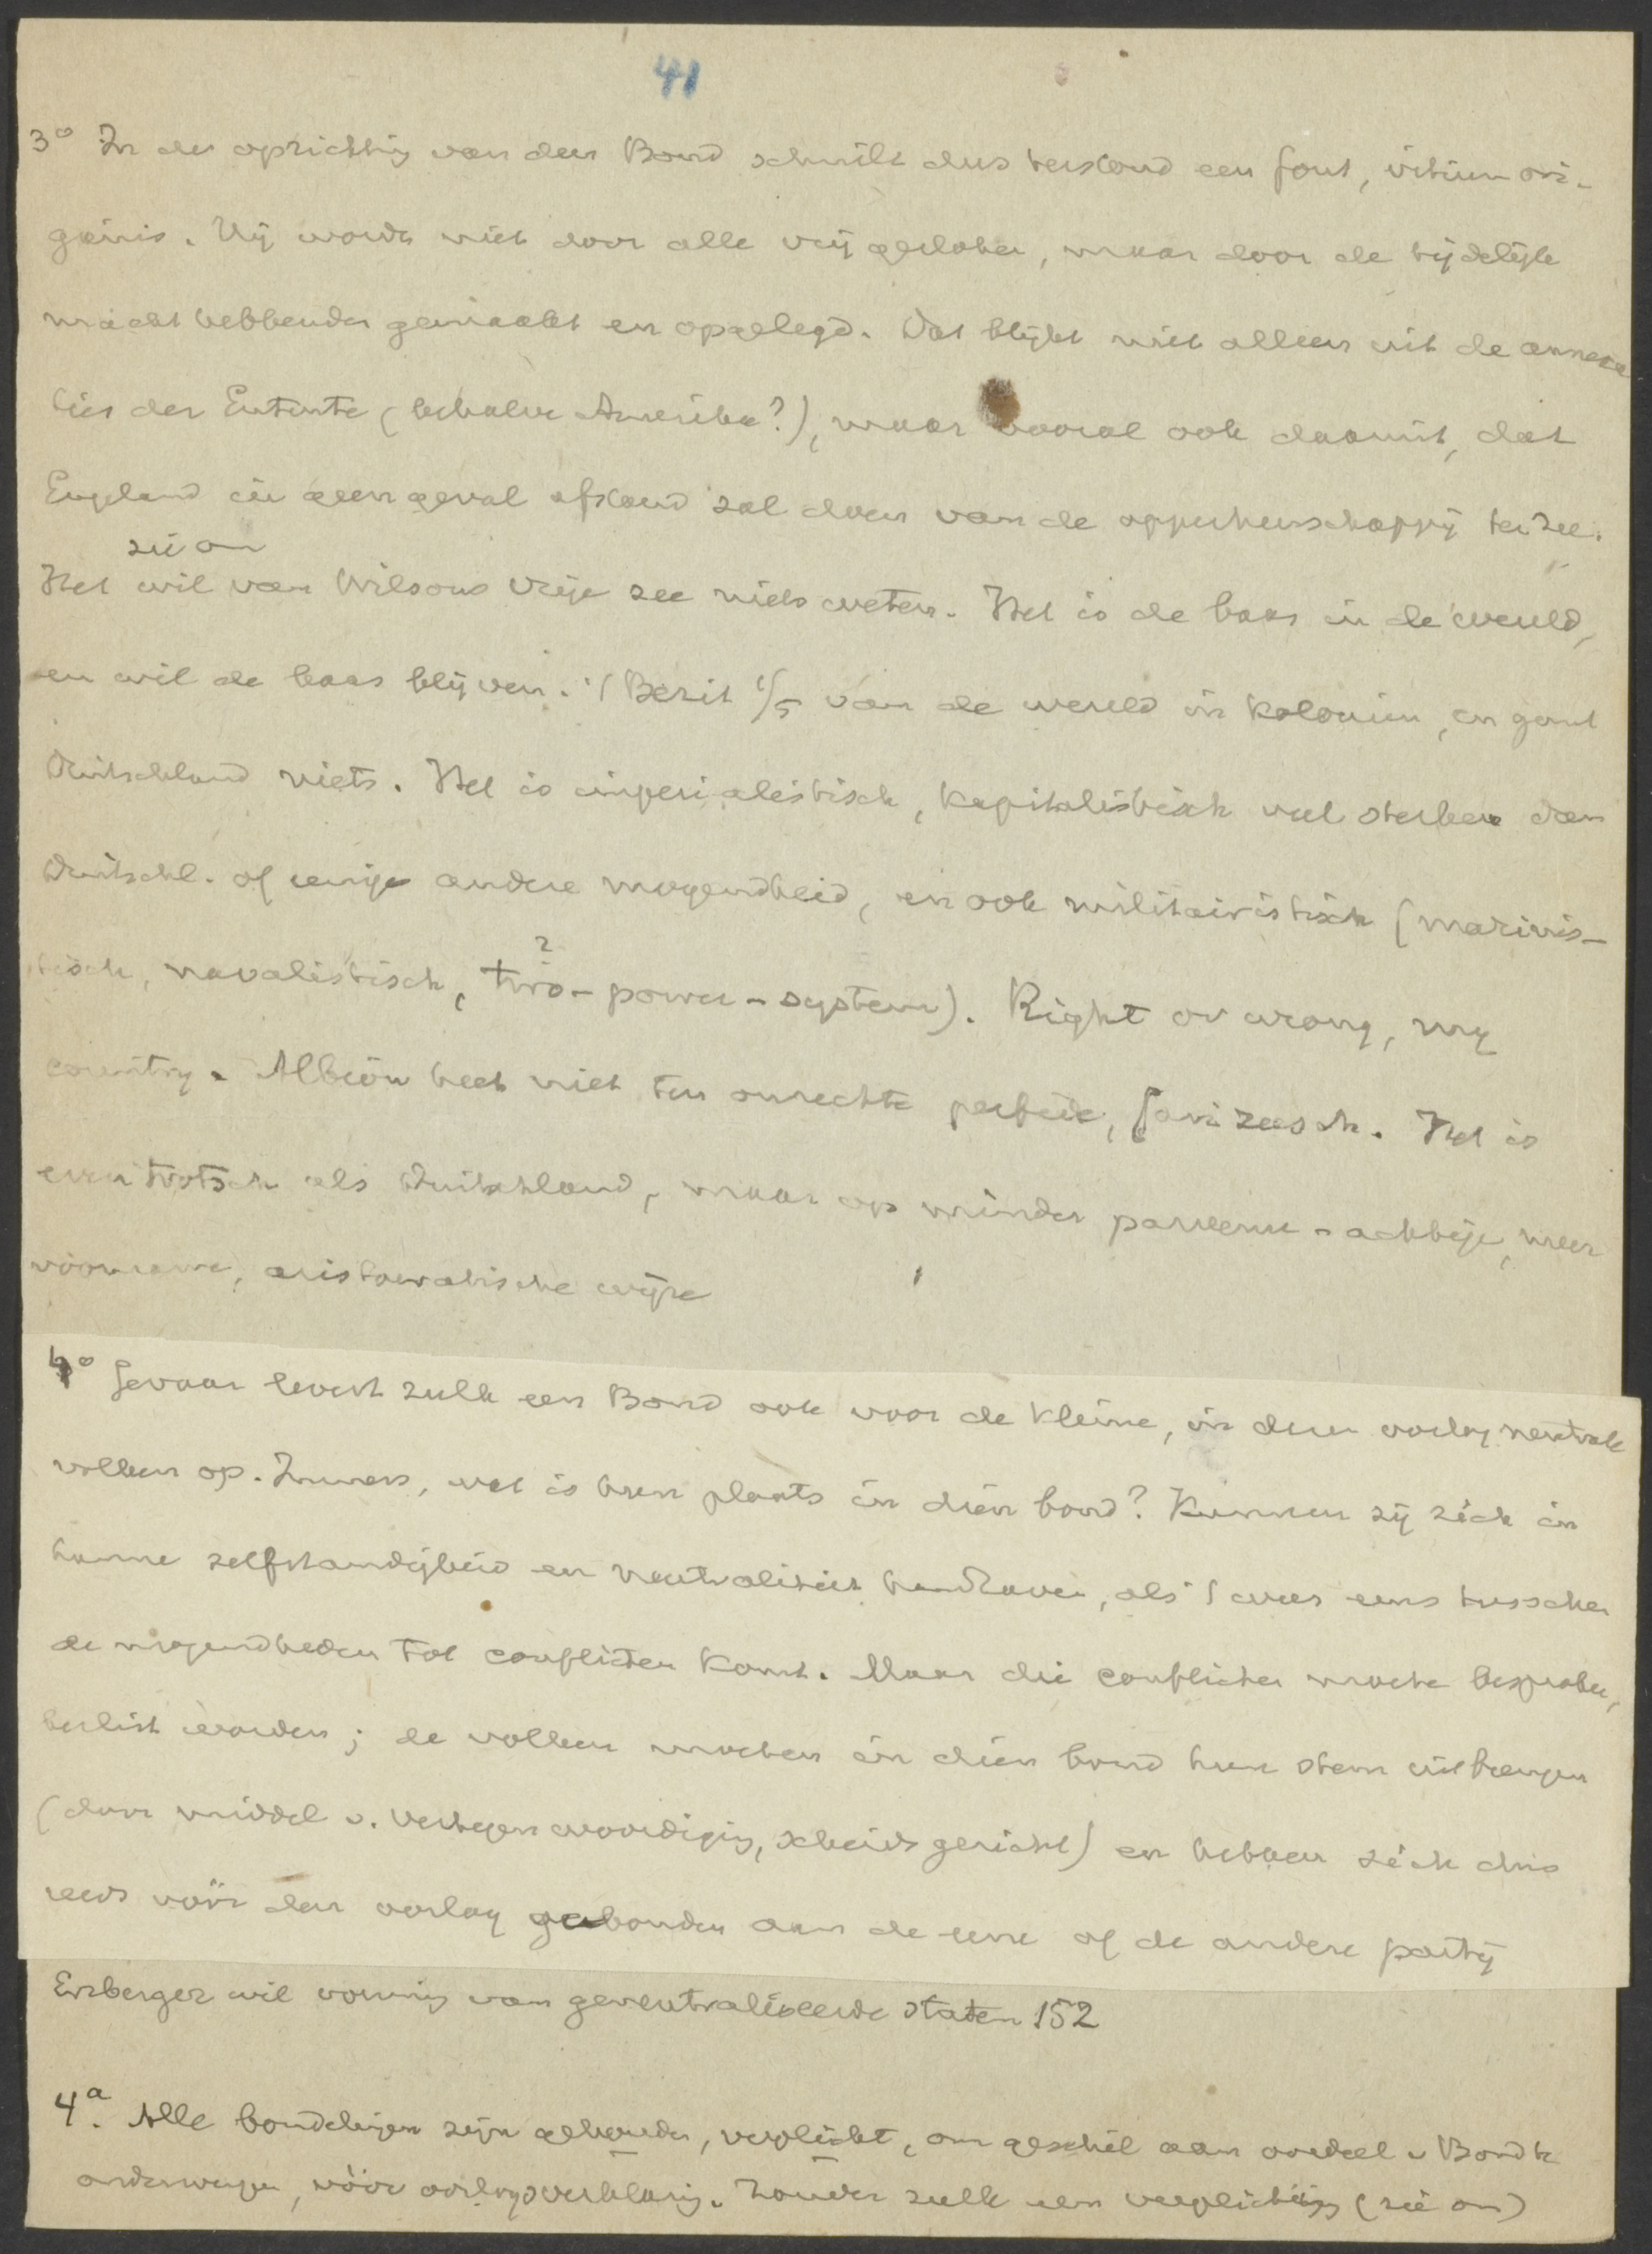 41
3° In de oprichting van den Bond schuilt dus terstond een fout, vitium ori-
ginis. Hij wordt niet door alle vrij gesloten, maar door de tijdelijke
macht hebbenden gemaakt en opgelegd. Dat blijkt niet alleen uit de annexa-
ties der Entente (behalve Amerika?), maar vooral ook daaruit, dat
Engeland in geen geval afstand zal doen van de opperheerschappij ter zee.
zie om
Het wil van Wilsons vrije zee niets weten. Het is de baas in de wereld,
en wil de baas blijven. 't Bezit 1/5 van de wereld in koloniën, en gunt
Duitschland niets. Het is imperialistisch, kapitalistisch veel sterker dan
Duitschl. of eenige andere mogendheid, en ook militairistisch (marinis-
tisch, navalistisch, two-power-system). Right or wrong, my
2
country. Albion heet niet ten onrechte perfide, farizeesch. Het is
even trotsch als Duitschland, maar op minder parvenu-achtige, meer
voorname, aristocratische wijze
4° Gevaar levert zulk een Bond ook voor de kleine, in dezen oorlog neutrale
volken op. Immers, wat is hun plaats in dien bond? Kunnen zij zich in
hunne zelfstandigheid en neutraliteit handhaven, als 't weer eens tusschen
de mogendheden tot conflicten komt. Maar die conflicten moeten besproken,
beslist worden; de volken moeten in dien bond hun stem uitbrengen
(door middel v. vertegenwoordiging, scheidsgericht) en hebben zich dus
reeds vóór den oorlog gebonden aan de eene of de andere partij
Erzberger wil vorming van geneutraliseerde staten 152
4a. Alle bondelingen zijn gehouden, verplicht, om geschil aan oordeel v Bond te
onderwerpen, vóór oorlogsverklaring. Zonder zulk een verplichting (zie om)